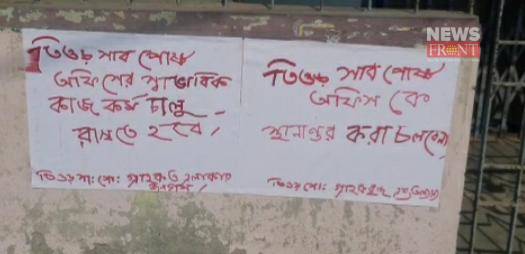 NEWS
FRONT
তিওড় সাব পোষ্ট
অফিসের স্বাভাবিক
কাজ কর্ম চালু
রাখতে হবে,
তিওড় সাব পোষ্ট
অফিস কে
স্থানান্তর করা চলবেনা
তিওড় সা: পো: গ্রাহক ও এলাকার
তিওড় পো: গ্রাহকবৃন্দ